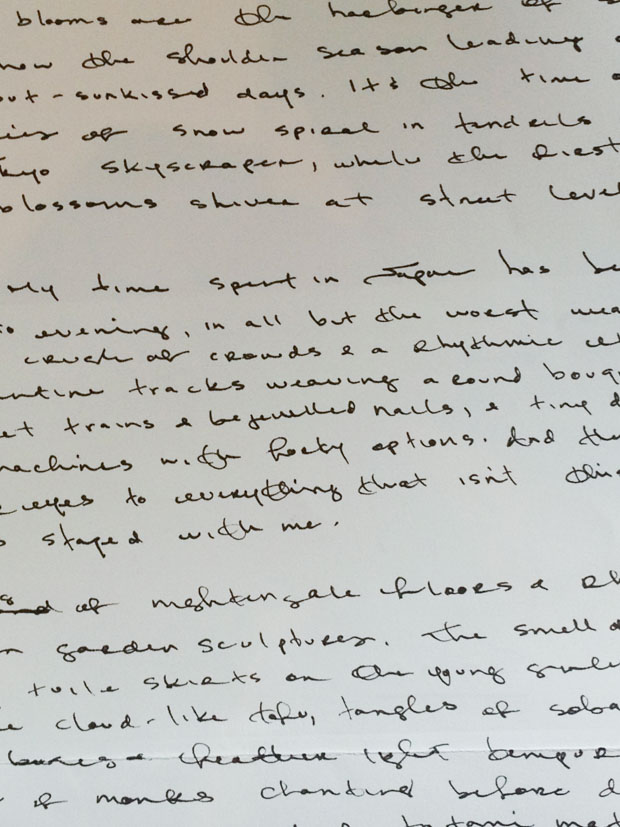 blooms are the harbinger of
now the shoulder season leading
out-sunkissed days. It's the time
of snow spiral in tendrils
kyo skyscraper, while the first
blossoms shiver at street level
My time spent in Japan has be
to evening, in all but the worst wea
crush of crowds & a rhythmic
tracks weaving around bouq
et trains & bejewelled nails, & tiny d
machines with forty options. And the
eyes to everything that isn't this
stayed with me.
of nightingale floors &
garden sculptures. The smell o
tulle skirts on the young
cloud-like tofu, tangles of soba
& feather light tempur
of monks chanting before d